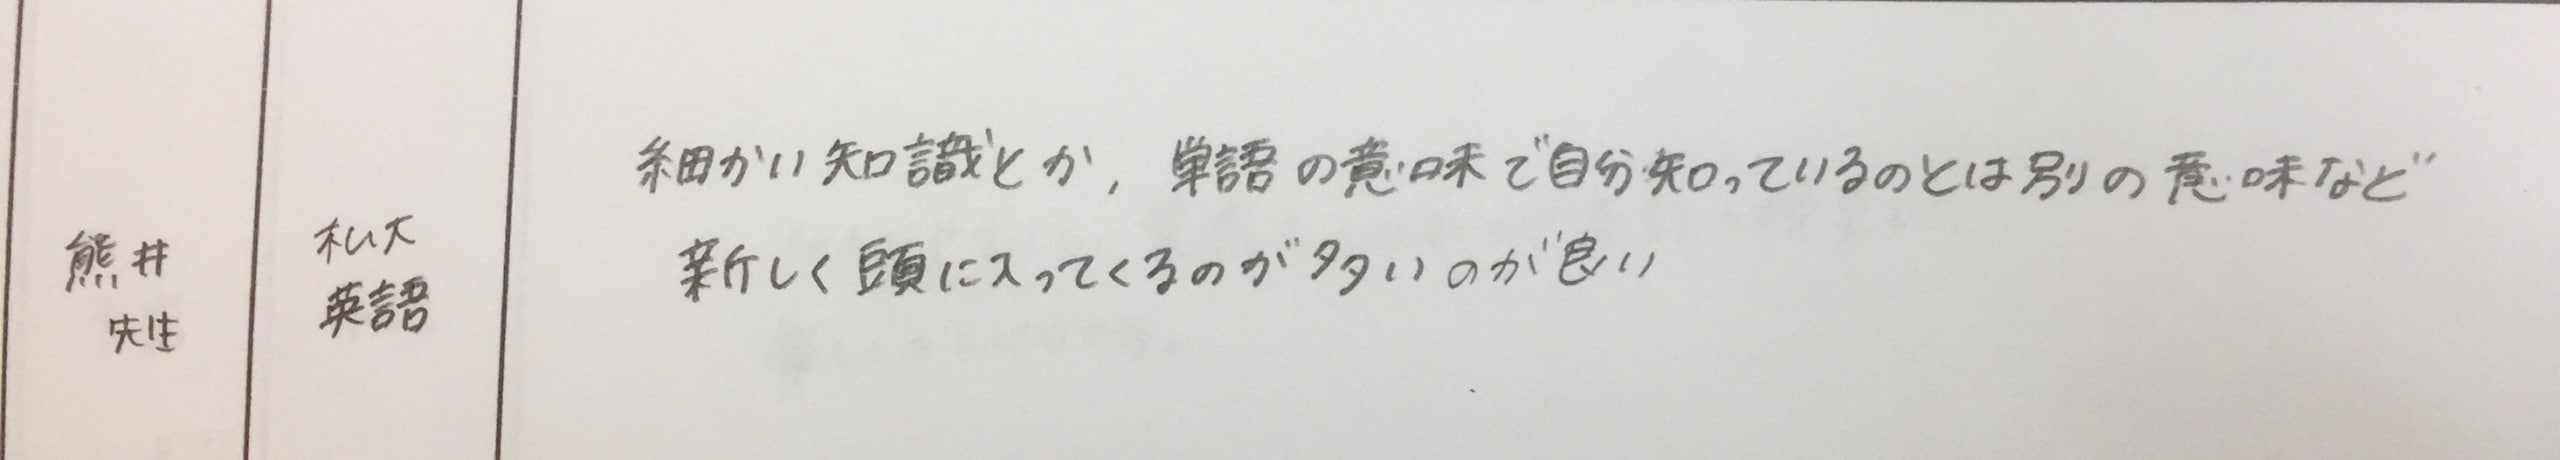 熊井
先生
私大
英語
細かい知識とか, 単語の意味で自分知っているのとは別の意味など
新しく頭に入ってくるのが多いのが良い